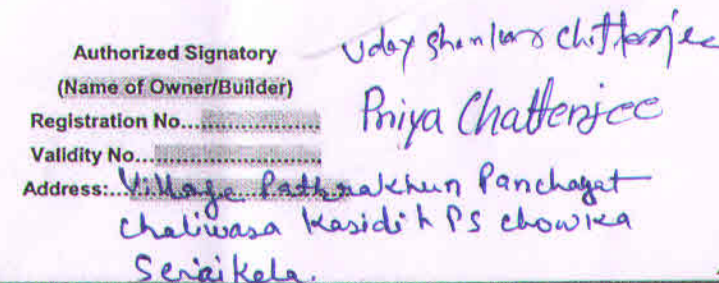 Authorized Signatory
Uday Shankar Chatterjee
(Name of Owner/Builder)
Priya Chatterjee
Registration No...
Validity No...
Address:... Village Pathrakhun Panchayat
Chaliwasa Kasidih PS chowka
Seraikela.